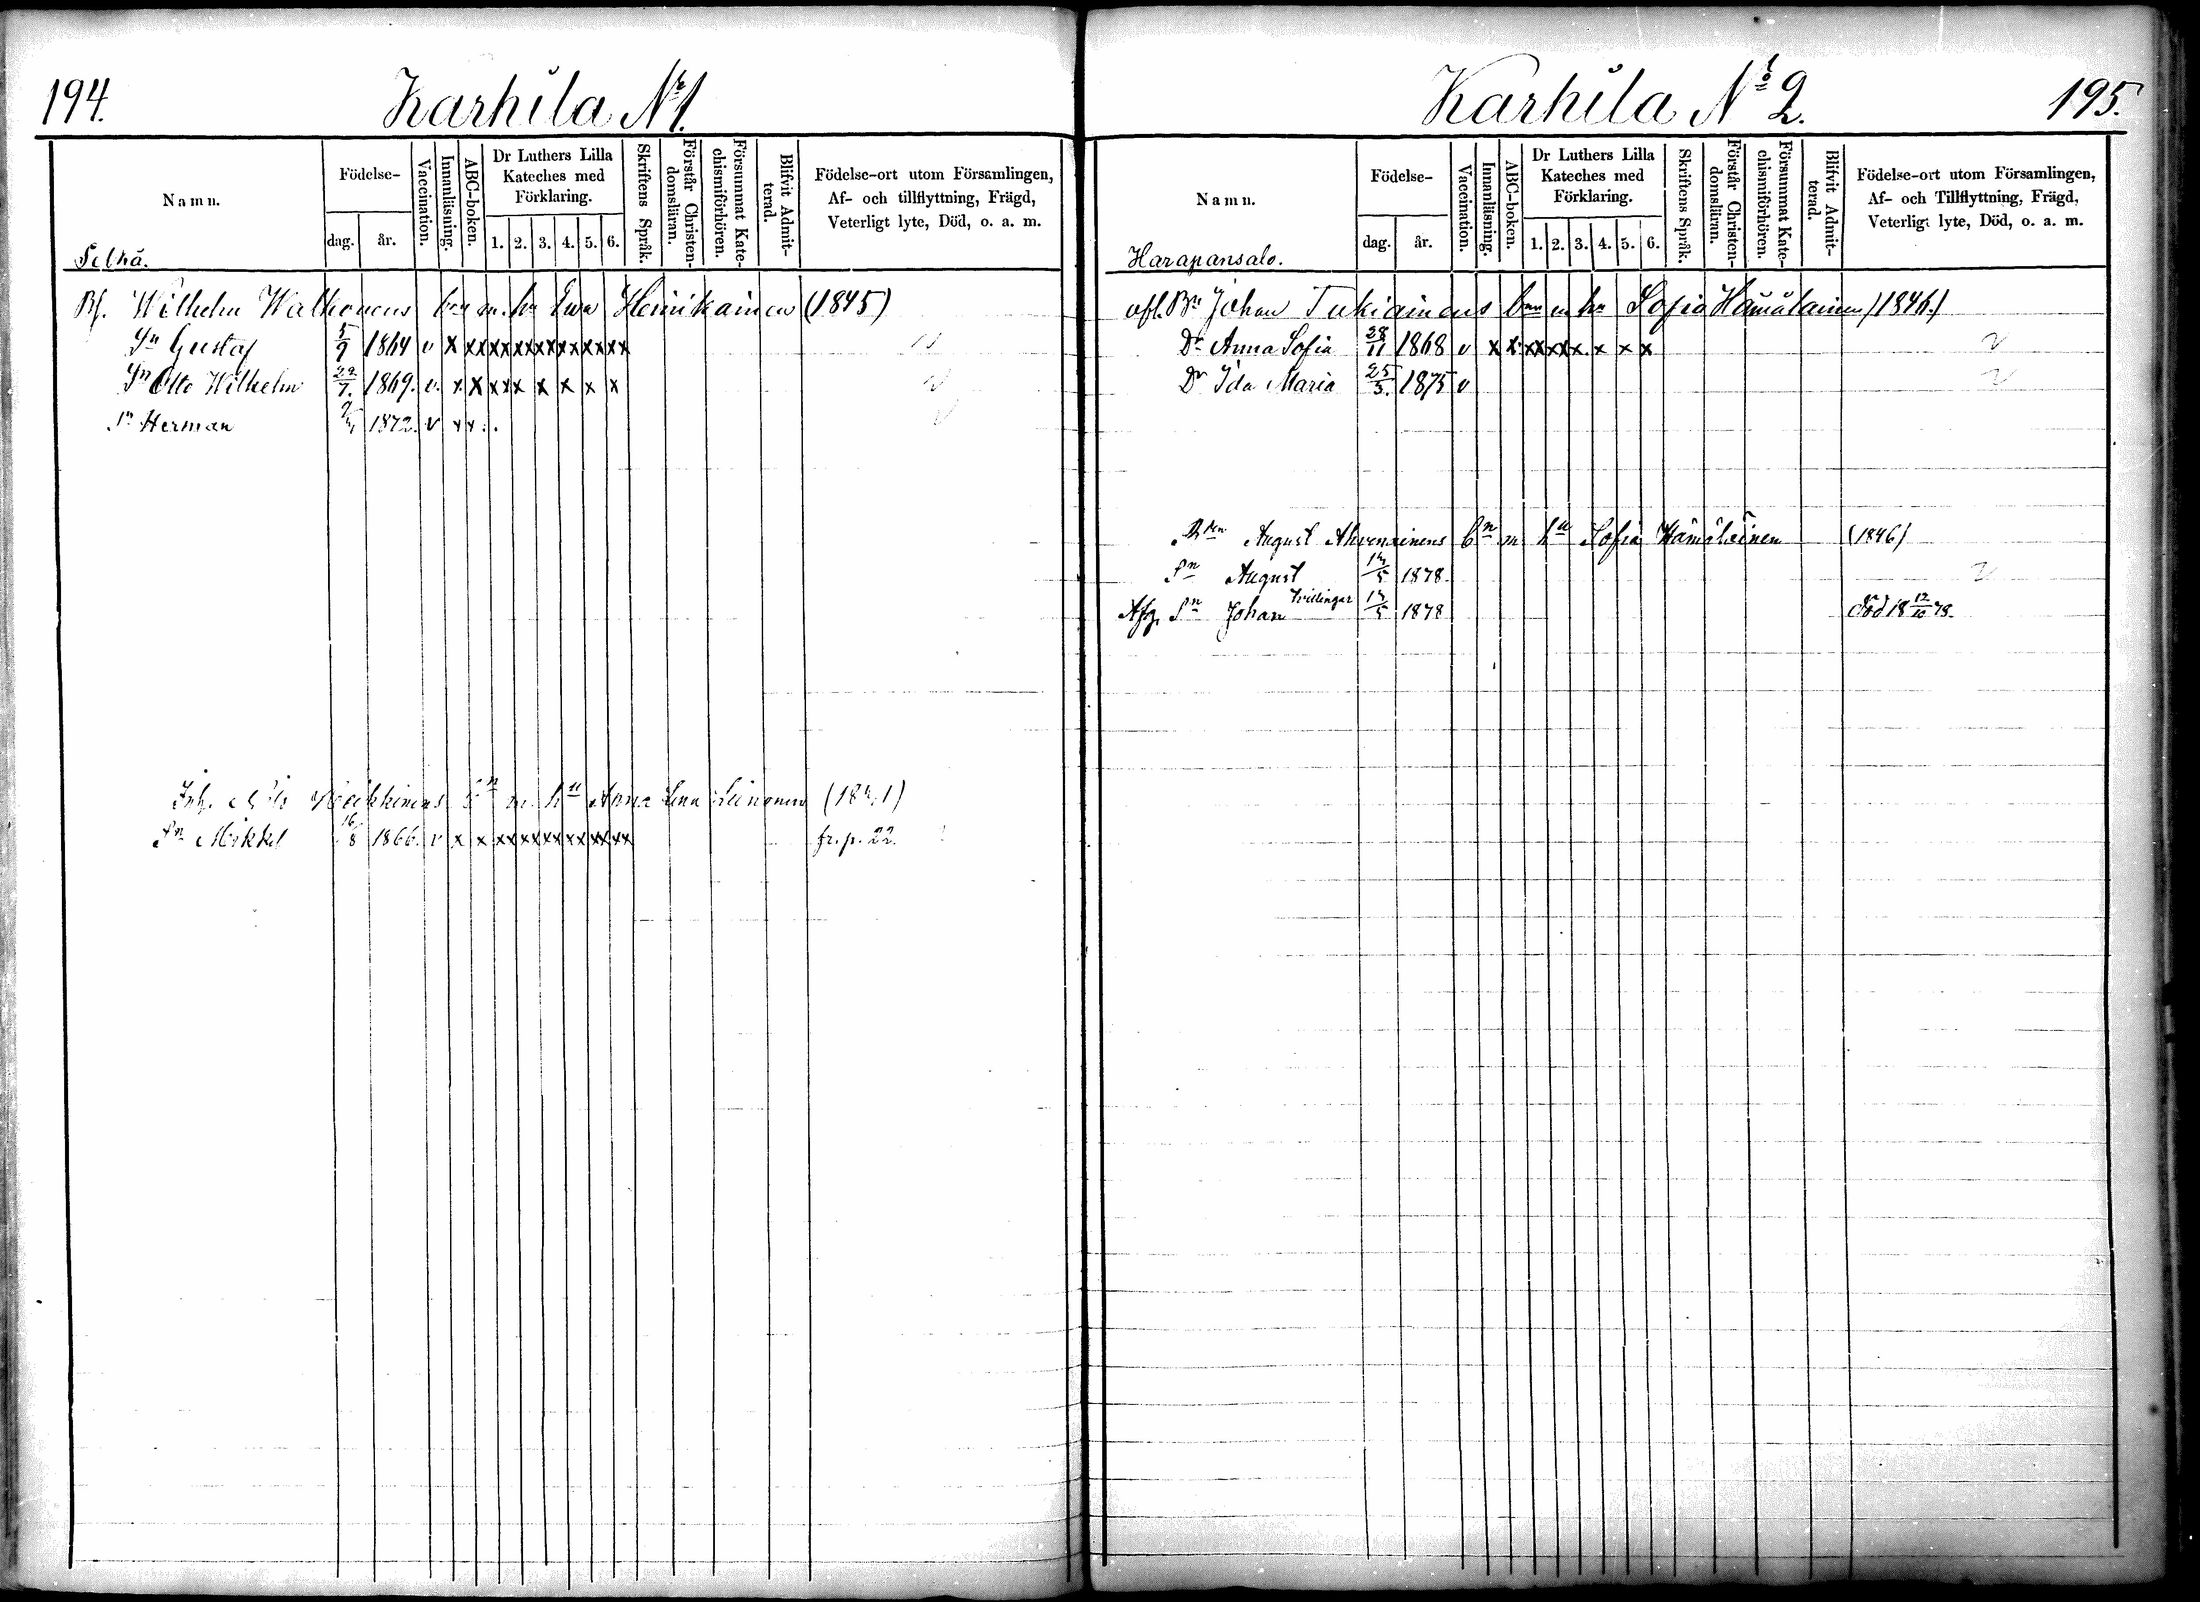 194.
Karhila No 1.
Namn.
Födelse-
dag.
år.
Vaccination.
Innanläsning.
ABC-boken.
Dr Luthers Lilla
Kateches med
Förklaring.
1. 2. 3. 4. 5. 6.
Skriftens Språk.
Förstår Christen-
domsläran.
Försummat Kate-
chismiförhören.
Blifvit Admit-
terad.
Födelse-ort utom Församlingen,
Af- och tillflyttning, Frägd,
Veterligt lyte, Död, o. a. m.
Wilhelm Walkonens bn m. hu Ewa Heinikainen (1845)
Sn Gustaf 5/9 1864 v x xx xx xx xx xx xx xx
Sn Otto Wilhelm 22/7. 1869. v. x x xxx x x x x
Sn Herman 1872. v xx
m. hu Anna Lena Leinonen
Sn Mikkel 16/8 1866. v x x xx xx xx xx xx xx fr. p. 22.
Karhila No 2.
195.
Namn.
Födelse-
dag.
år.
Vaccination.
Innanläsning.
ABC-boken.
Dr Luthers Lilla
Kateches med
Förklaring.
1. 2. 3. 4. 5. 6.
Skriftens Språk.
Förstår Christen-
domsläran.
Försummat Kate-
chismiförhören.
Blifvit Admit-
terad.
Födelse-ort utom Församlingen,
Af- och Tillflyttning, Frägd,
Veterligt lyte, Död, o. a. m.
Harapansalo.
afl. Bn Johan Tukiainens bn m hu Sofia Hämäläinen (1846.)
Dr Anna Sofia 28/11 1868 v x x xx xx x x x x
Dr Ida Maria 25/3. 1875 v
August Ahvenainens bn m hu Sofia Hämäläinen (1846)
Sn August 1878.
Afg. Sn Johan Tvillingar 1878 Död 18 12/10 78.